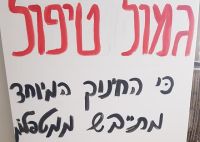 גמול טיפול
כי החינוך המיוחד
מתייבש ממטפלים